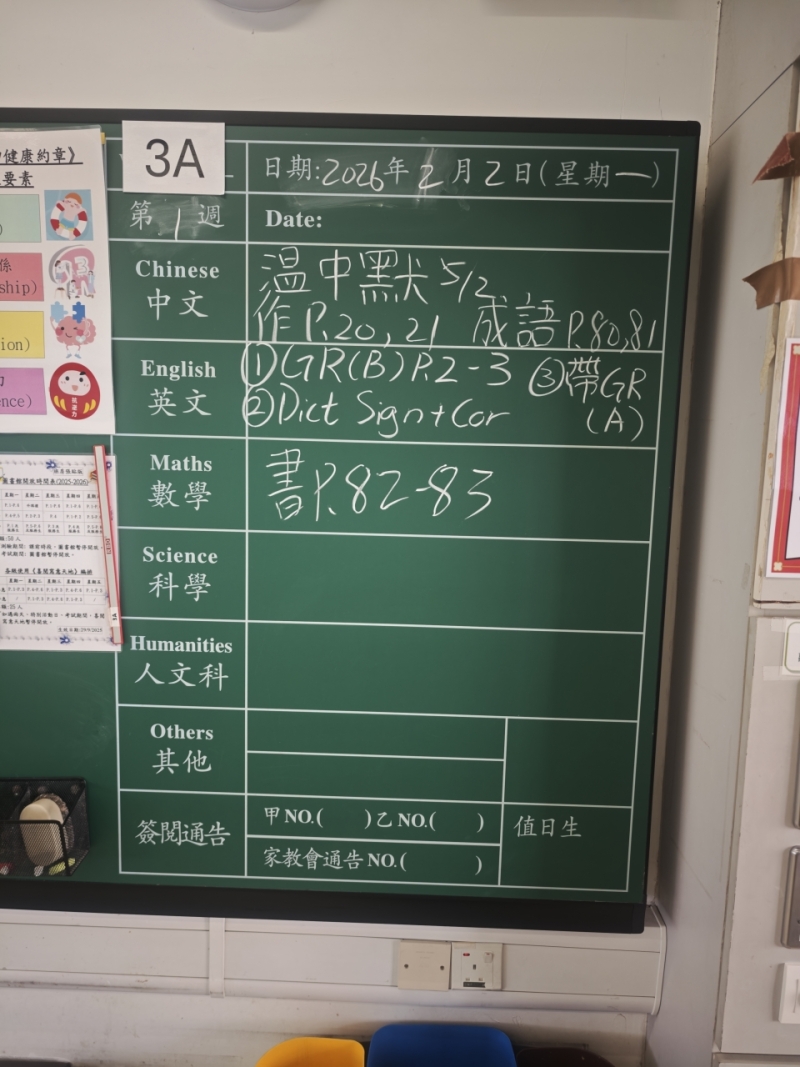 健康約章》
要素
ship)
ion)
ence)
3A
日期:2026年2月2日(星期一)
第1週
Date:
Chinese
中文
溫中默5/2
作P.20,21 成語P.80,81
English
英文
①GR(B)P.2-3 ③帶GR(A)
②Dict Sign+Cor
Maths
數學
書P.82-83
Science
科學
Humanities
人文科
Others
其他
簽閱通告
甲NO.( )乙NO.( )
家教會通告NO.( )
值日生